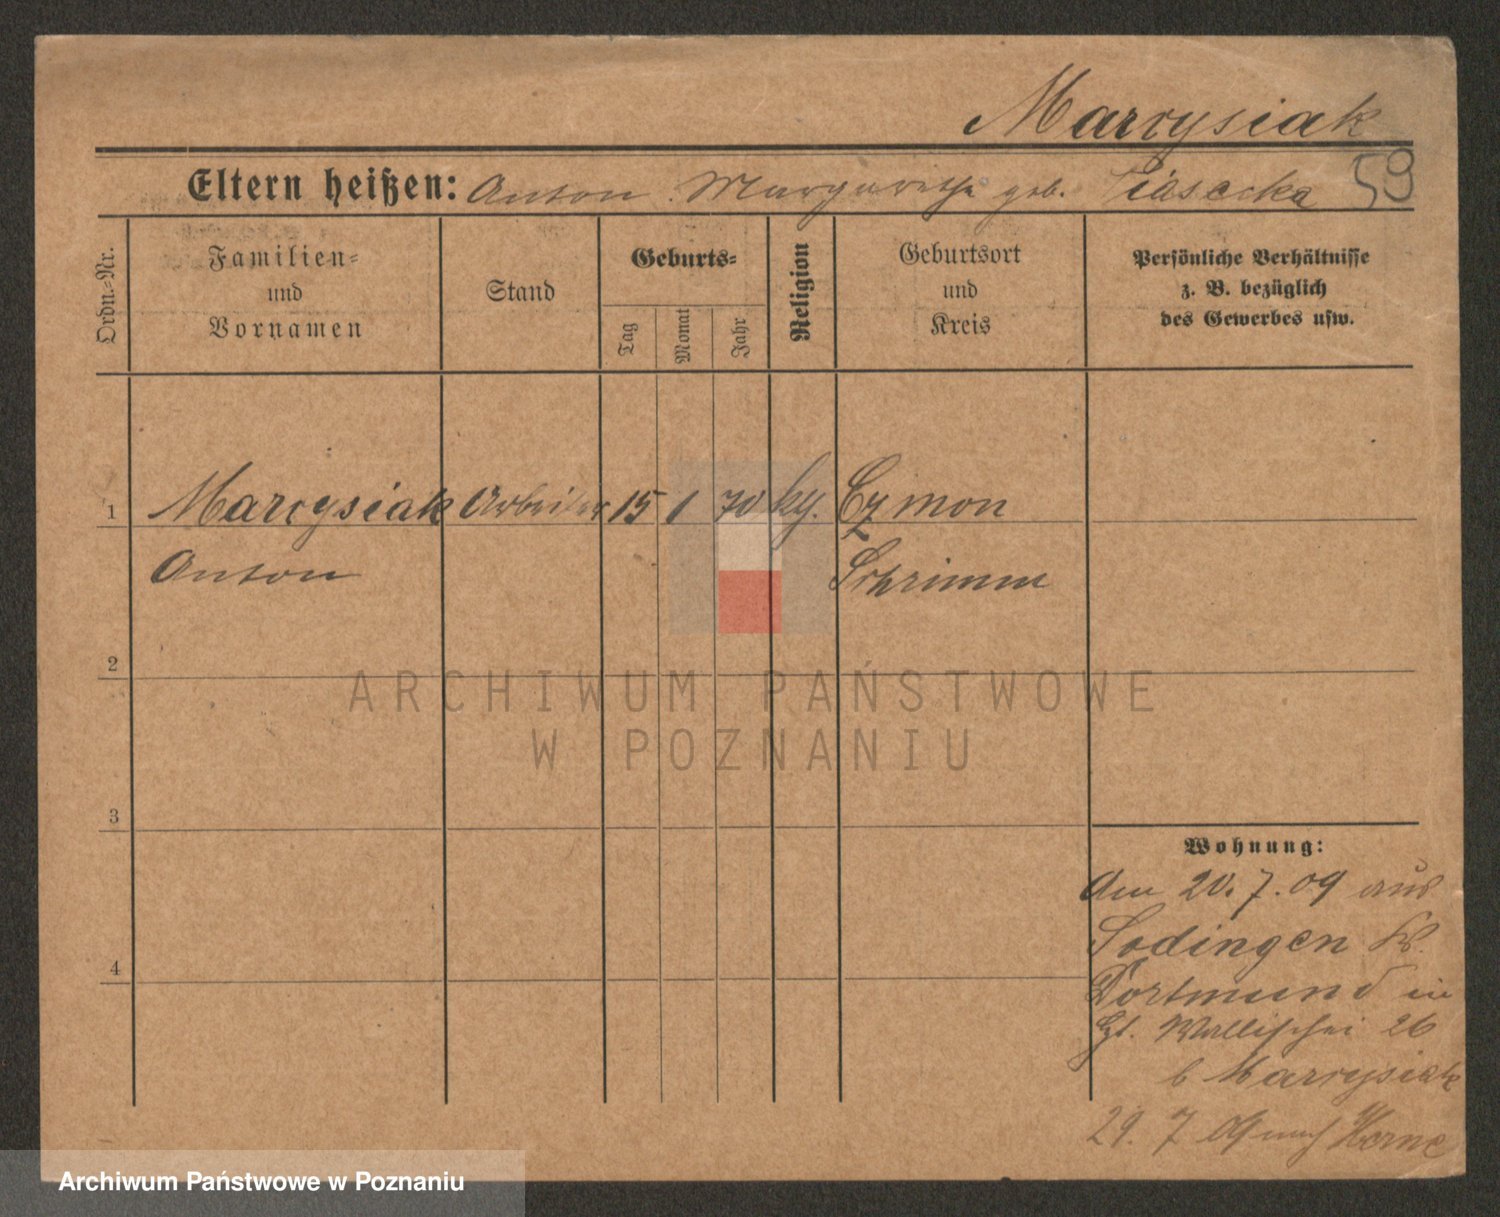 Marcysiak
59
Eltern heißen: Anton Margarethe geb. Piasecka
Ordn.=Nr.
Familien=
und
Vornamen
Stand
Geburts=
Tag
Monat
Jahr
Religion
Geburtsort
und
Kreis
Persönliche Verhältnisse
z. B. bezüglich
des Gewerbes usw.
1 Marcysiak Arbeiter 15 1 70 kg. Czmon
Anton Schrimm
2
3
4
Wohnung:
Am 20.7.09 aus
Sodingen Kr.
Dortmund in
Wallischei 26
b Marcysiak
29. 7 09 nach Herne
ARCHIWUM PAŃSTWOWE
W POZNANIU
Archiwum Państwowe w Poznaniu